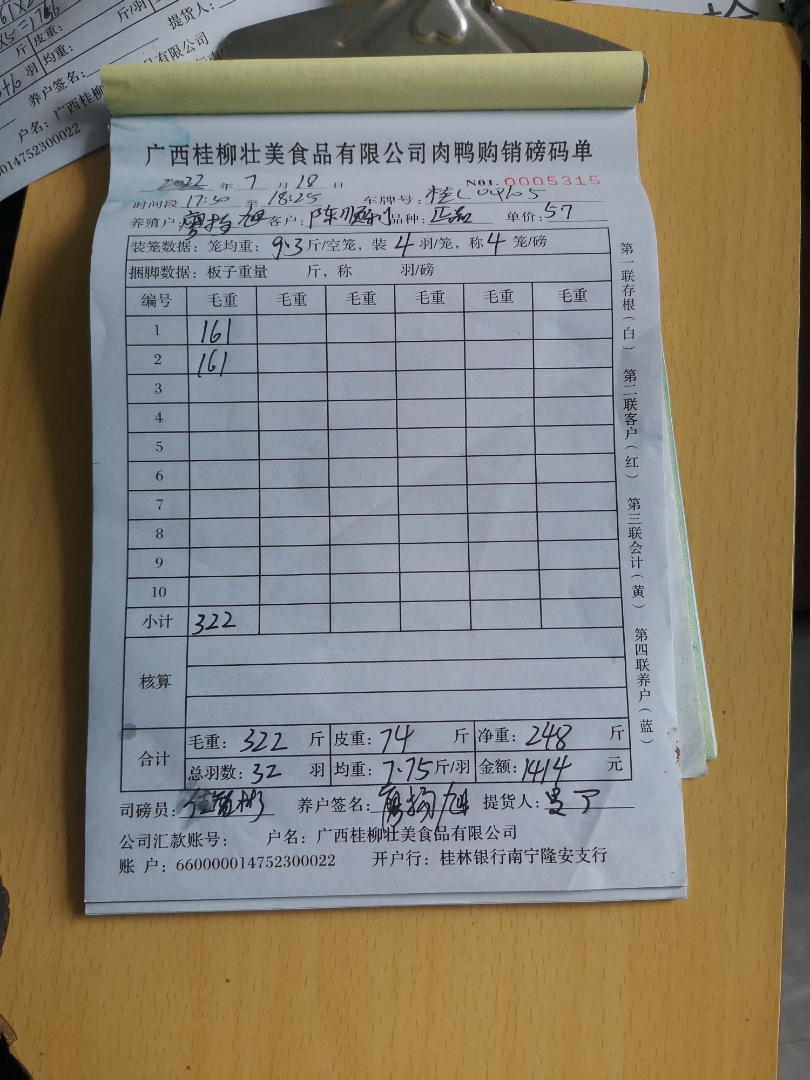 斤/羽
提货人:
斤 皮重:
均重:
羽
养户签名:
广西桂柳
品有限公司
户名:
014752300022
广西桂柳壮美食品有限公司肉鸭购销磅码单
2022 年 7 月 18 日 NO1. 0005315
时间段 17:50 至 18:25 车牌号: 桂C04105
养殖户: 廖扬旭 客户: 陈顺 品种: 正品 单价: 57
装笼数据: 笼均重: 9.3 斤/空笼, 装 4 羽/笼, 称 4 笼/磅
捆脚数据: 板子重量 斤, 称 羽/磅
编号 毛重 毛重 毛重 毛重 毛重 毛重
1 161
2 161
3
4
5
6
7
8
9
10
小计 322
核算
合计
毛重: 322 斤 皮重: 74 斤 净重: 248 斤
总羽数: 32 羽 均重: 7.75 斤/羽 金额: 1414 元
司磅员: 养户签名: 廖扬旭 提货人:
公司汇款账号: 户名: 广西桂柳壮美食品有限公司
账 户: 660000014752300022 开户行: 桂林银行南宁隆安支行
第一联存根(白) 第二联客户(红) 第三联会计(黄) 第四联养户(蓝)